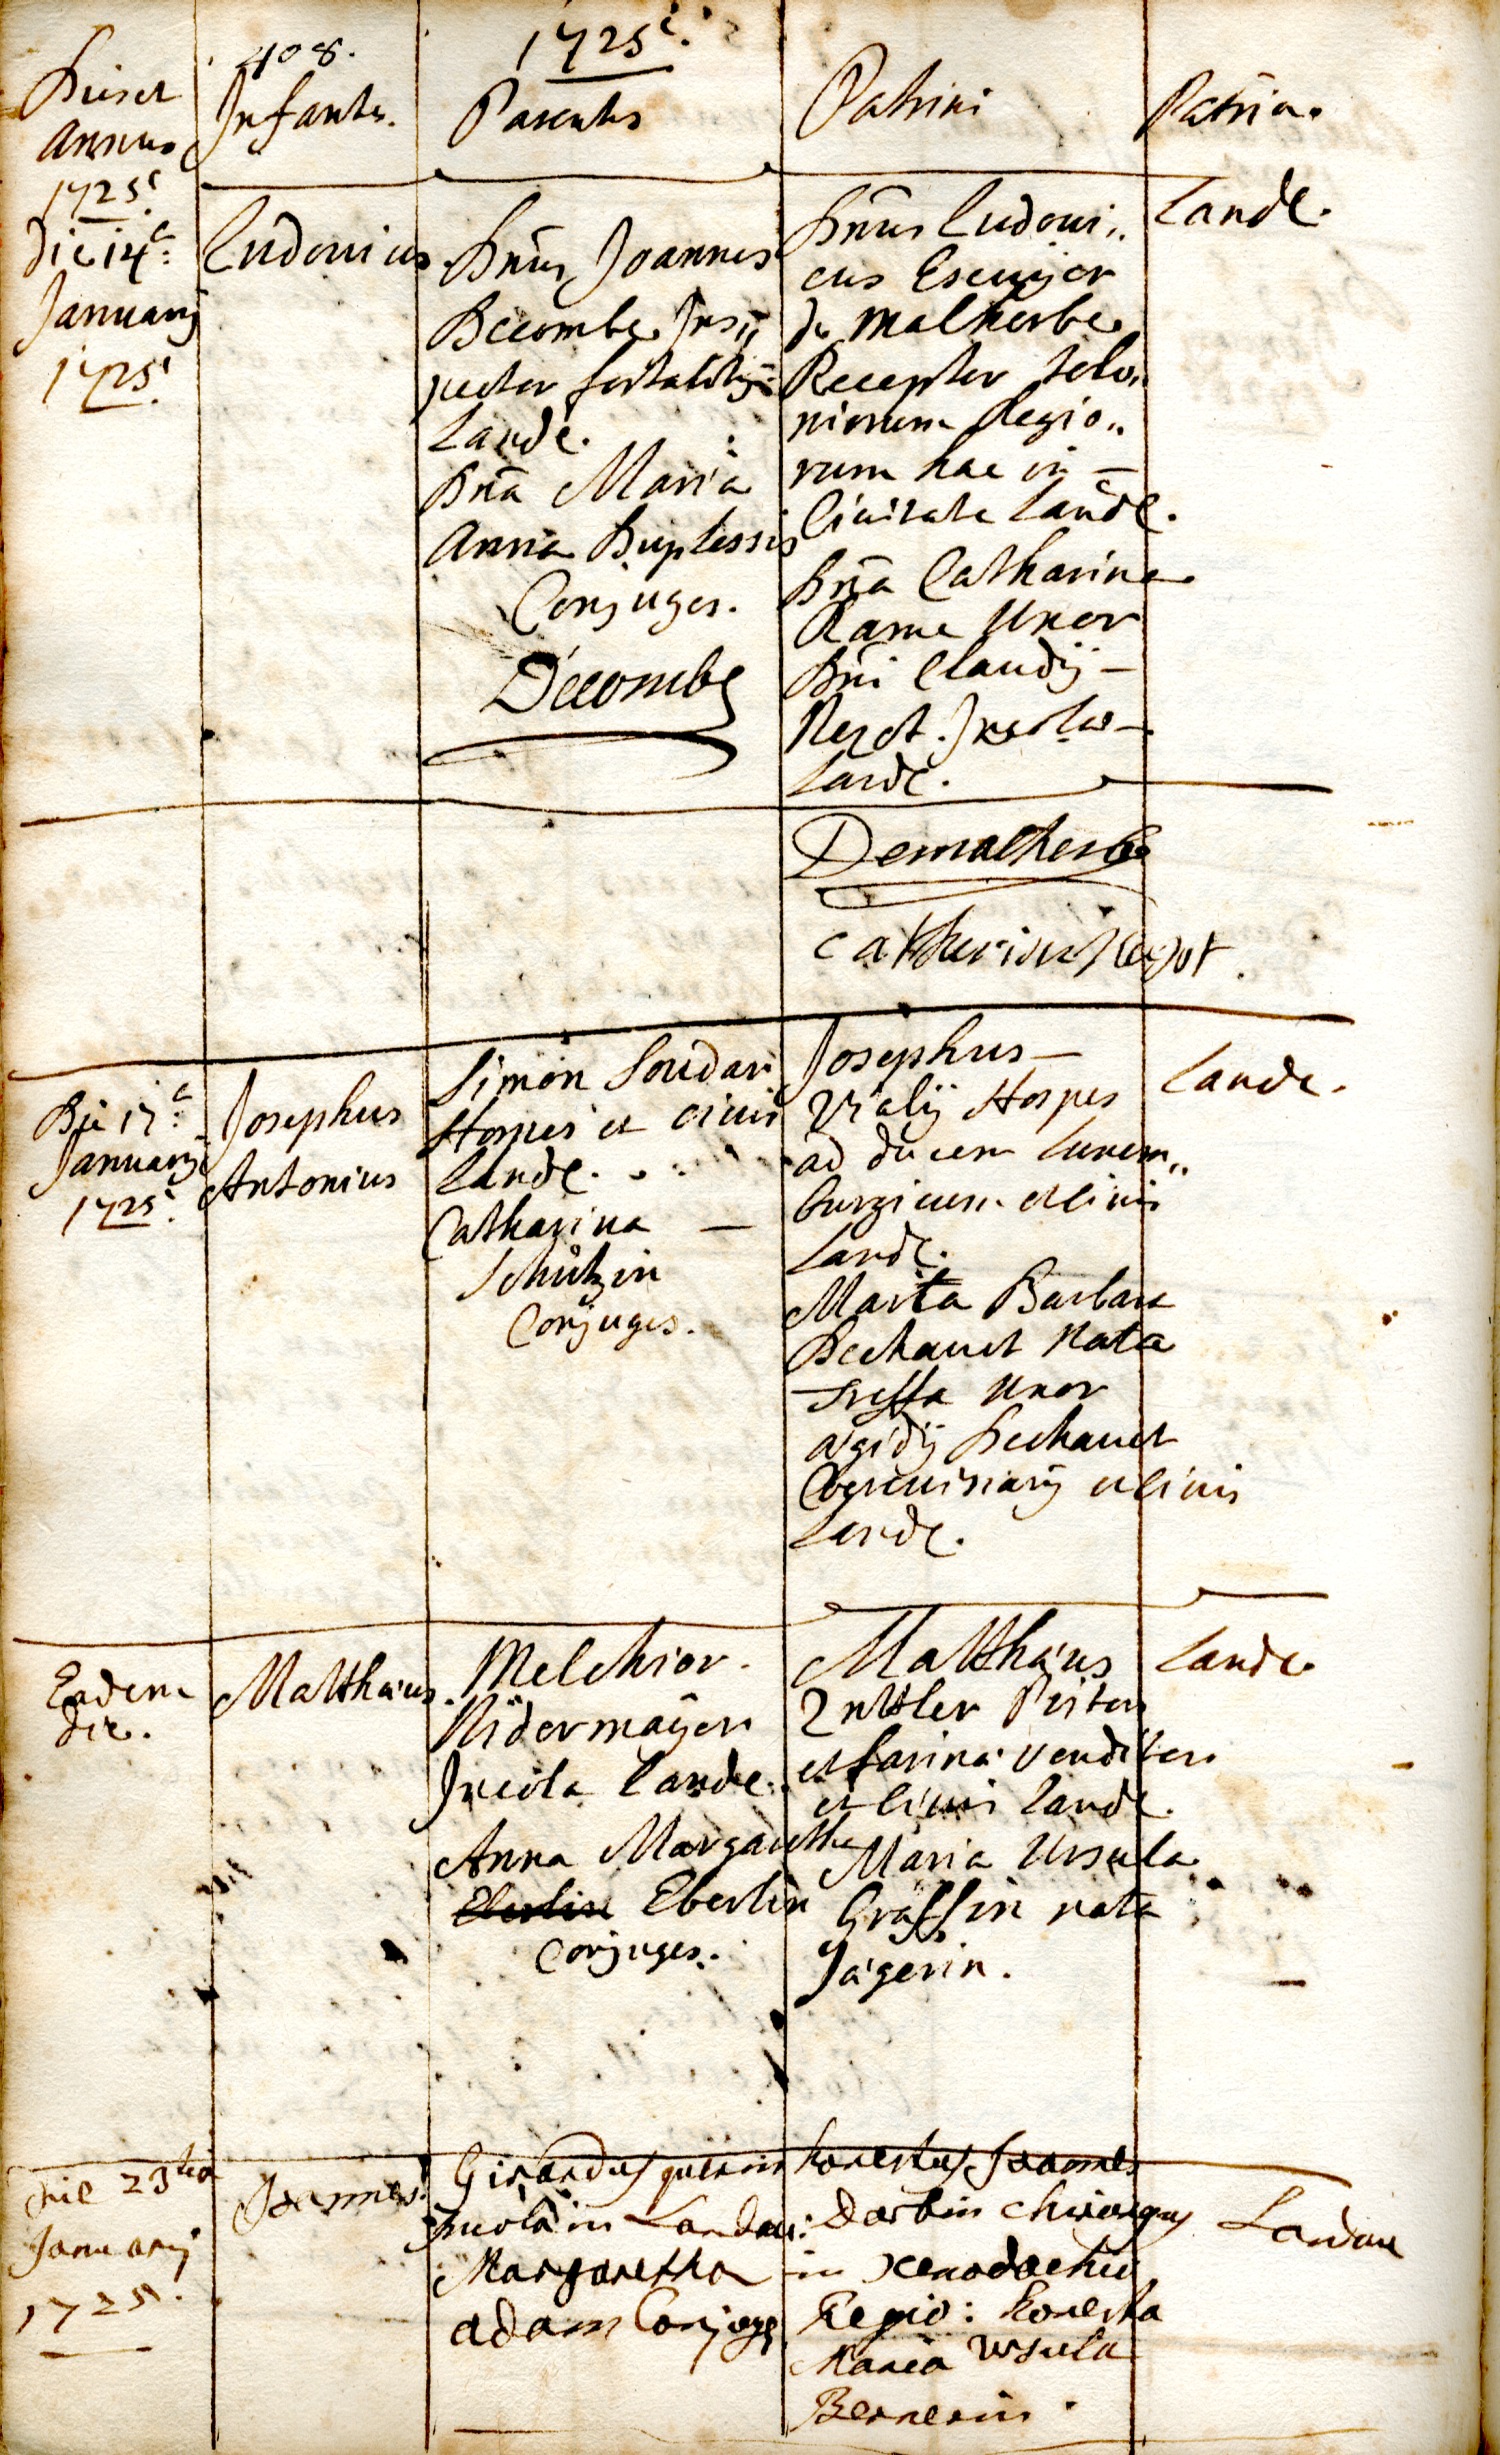 408.
1725.
Dies et
Annus
1725.
Infantes.
Parentes
Patrini
Patria.
Die 14.
Januarij
1725.
Ludovicus
Dnus Joannes
Decombe Ins,,
pector fortalitij
Landę.
Dna Maria
Anna Duplessis
Conjuges.
Décombe
Dnus Ludovi,,
cus Escuijer
de Malherbe
Receptor telo,,
niorum Regio,,
rum hac in —
Civitate Landę.
Dna Catharina
Rame Uxor
Dni Claudij —
Rezot. Incolae —
Landę.
Landę.
Demalherbe
Die 17.
Januarij
1725.
Josephus
Antonius
Simon Soudan
Hospes et Civis
Landę.
Catharina —
Schützin
Conjuges.
Josephus —
Vialij Hospes
ad ducem Luxem,,
burgicum et Civis
Landę.
Maria Barbara
Dechauet Nata
Uxor
Ægidij Dechauet
Cerevisiarij et Civis
Landę.
Landę.
Eadem
die.
Matthæus
Melchior
Nidermaÿer
Incola Landę.
Anna Margaretha
Eberlin Eberlin
Conjuges.
Matthæus
Pistor
et farinæ venditor
et Civis Landę.
Maria Ursula
Gräffin nata
Jägerin.
Landę.
Die 23tia
Januarij
1725.
Joannes
Girardus
Incola in Landau:
Margaretha
Adam Conjuges
honestus Joannes
Dorbin Chirurgus
in Xenodochio
Regio: honesta
Maria Ursula
Bernerin.
Landau